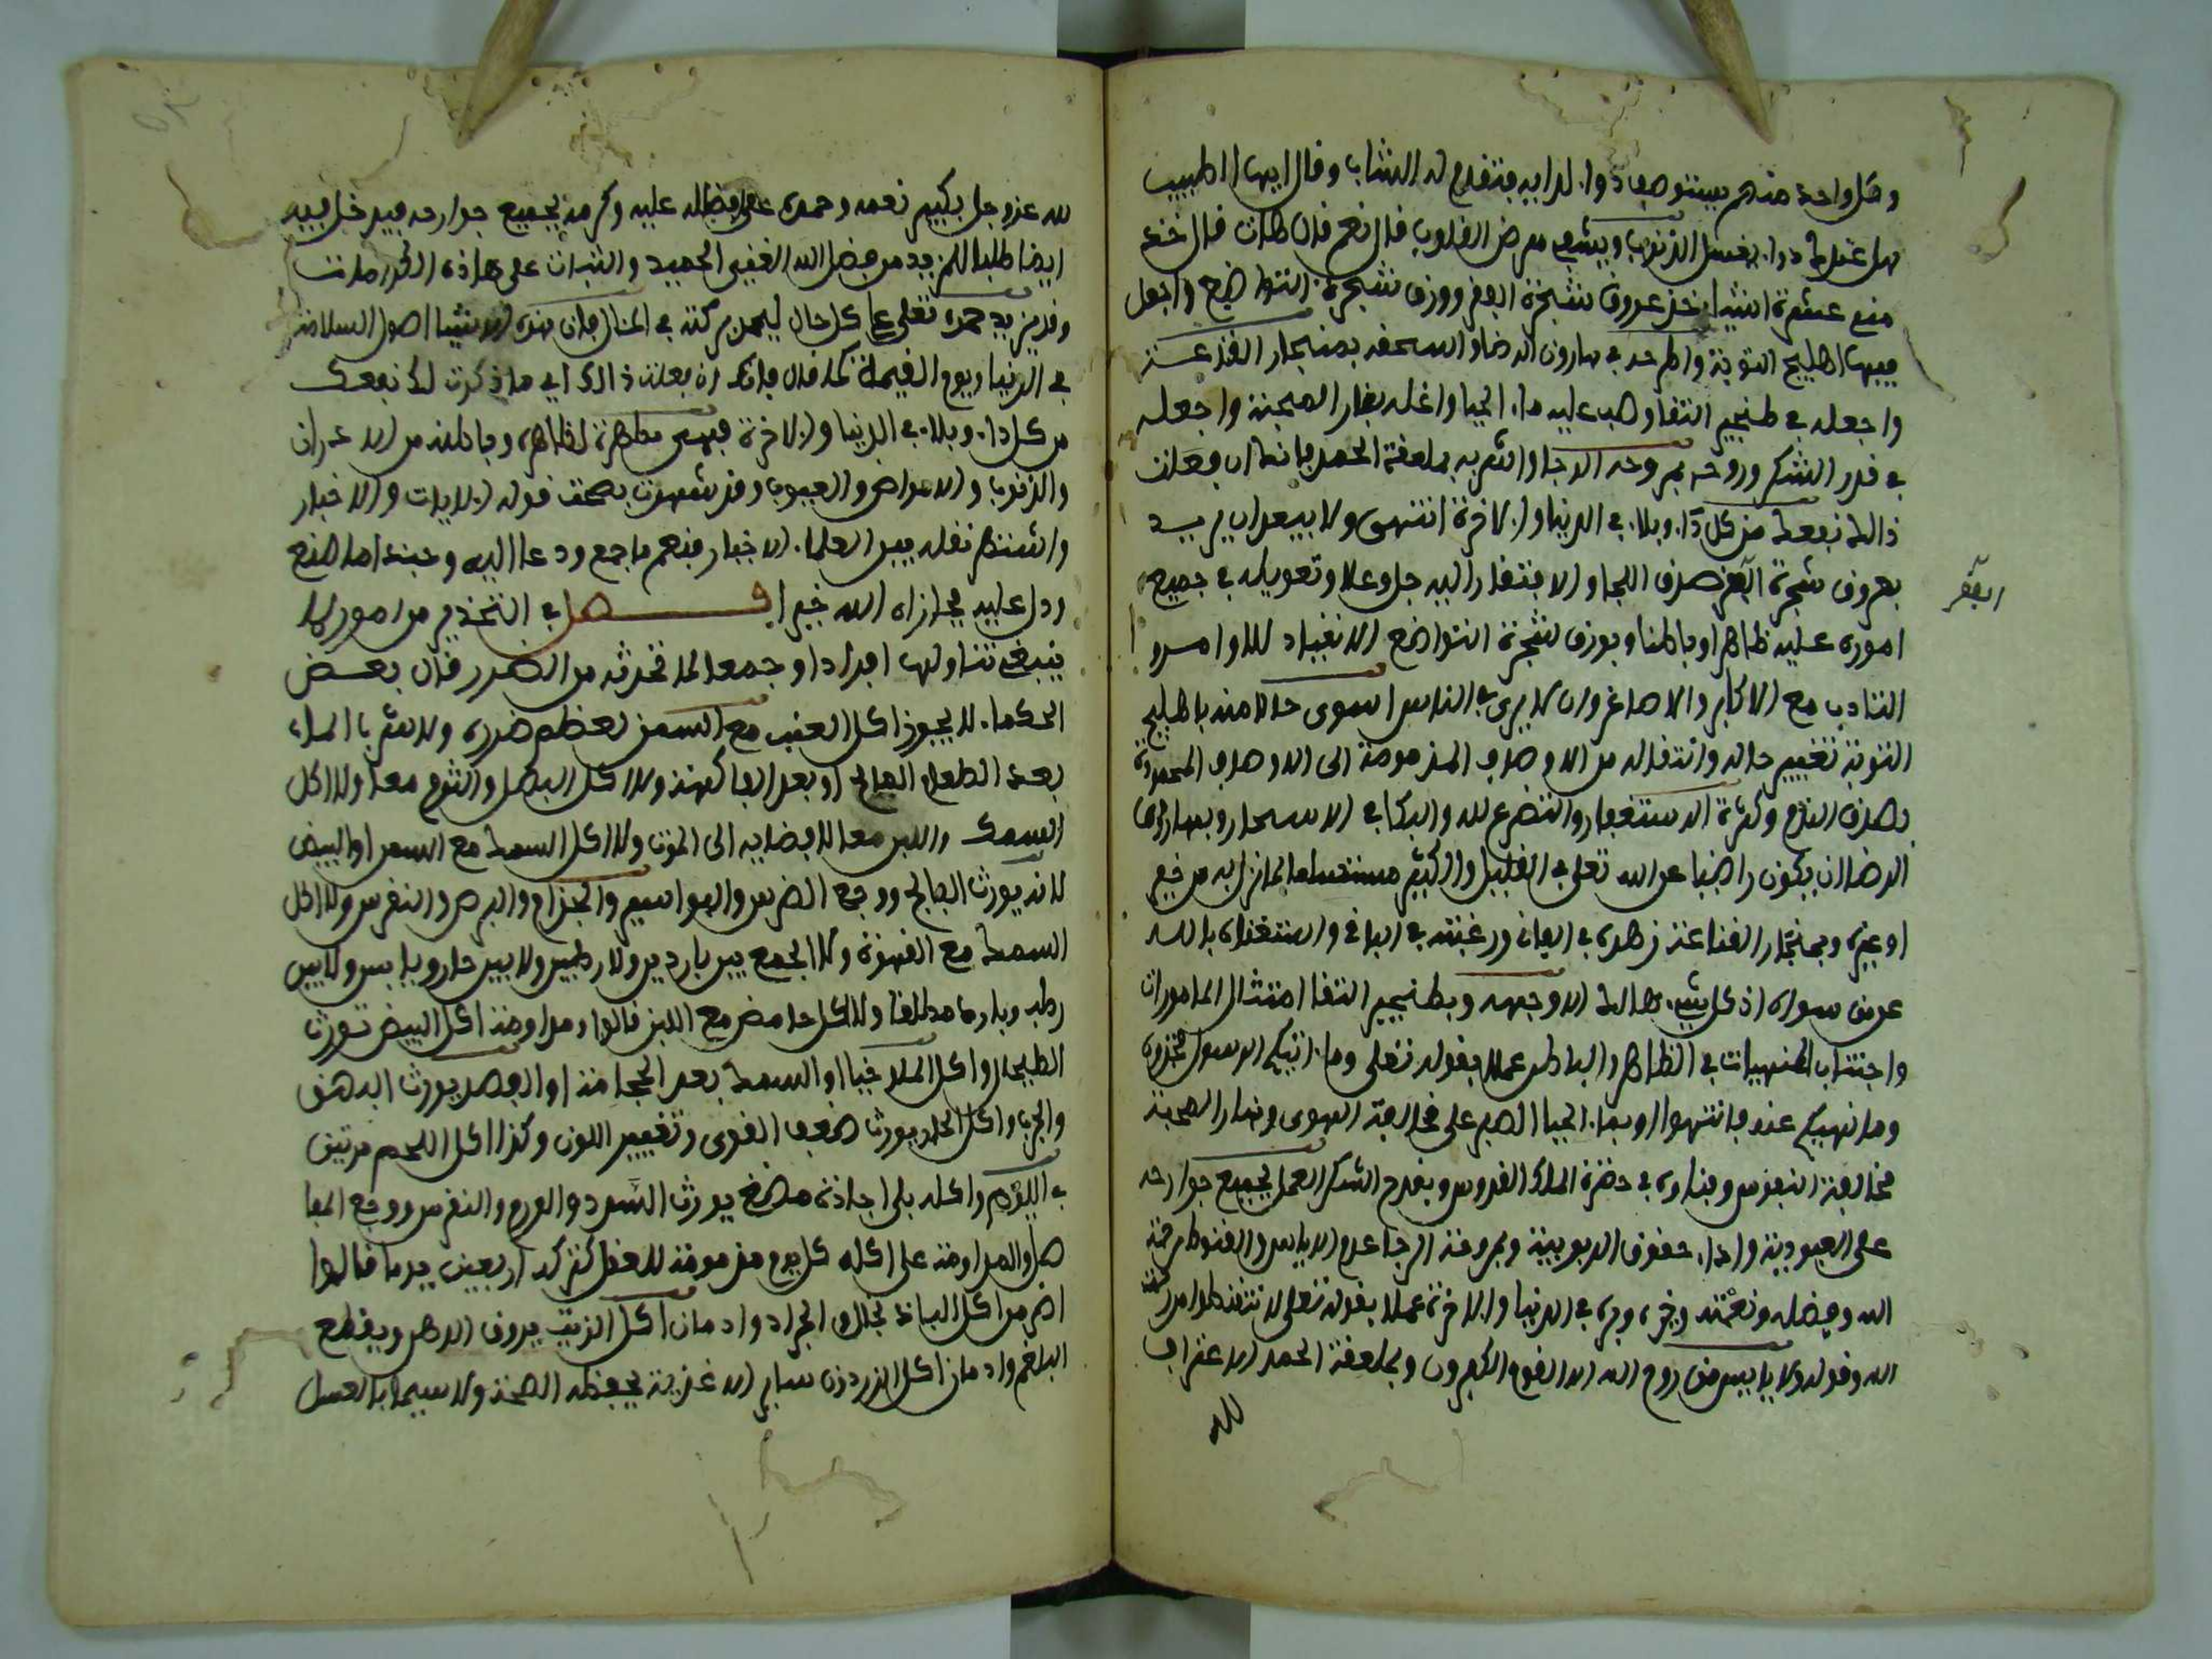 وكل واحد منهم يستوصف دوا. لدايه فتقدم له الشاب وقال ايها الطبيب
هل عندك دوا. يغسل الذنوب ويشفي مرض القلوب قال نعم قلت هات قال خذ
مني عشرة اشيا. خذ عروق شجرة الفقر وورق شجرة التواضع واجعل
فيها اهليلج التوبة واطرحه في هارون الرضا واسحقه بمنجار القناعة
واجعله في طنجير التقا وصب عليه ما. الحيا واغله بنار المحبة واجعله
في قدر الشكر وروحه بمروحة الرجا واشربه بملعقة الحمد فانك ان فعلت
ذالك نفعك من كل دا. وبلا. في الدنيا والاخرة انتهى ولا يبعد ان يريد
بعروق شجرة الفقر صدق اللجا والافتقار اليه جل وعلا وتعويله في جميع
الفقر
اموره عليه ظاهرا وباطنا وبورق شجرة التواضع الانقياد للاوامر و
التادب مع الاكابر والاصاغر وان لا يرى في الناس اسوى حالا منه باهليلج
التوبة تغيير حاله وانتقاله من الاوصاف المذمومة الى الاوصاف المحمودة
بصدق الندم وكثرة الاستغفار والتضرع لله والبكا في الاسحار وبهارون
الرضا ان يكون راضيا عن الله تعلى في القليل والكثير مستسلما لما نزل به من خير
او غيره وبمنجار القناعة زهده في الفاني ورغبته في الباقي واستغناه بالله
عمن سواه اذ كل شي. هالك الا وجهه وبطنجير التقا امتثال المامورات
واجتناب المنهيات في الظاهر والباطن عملا بقوله تعلى وما. اتيكم الرسول فخذوه
وما نهيكم عنه فانتهوا وبما. الحيا الصبر على مخالفة الهوى وبنار المحبة
مخالفة النفس وفناوه في حضرة الملك القدوس وبقدح الشكر العمل بجميع جوارحه
على العبودية وادا. حقوق الربوبية وبمروحة الرجا عدم الاياس والقنوط من رحمة
الله وفضله ونعمته وخيره وبره في الدنيا والاخرة عملا بقوله تعلى لا تقنطوا من رحمة
الله وقوله ولا ياييس من روح الله الا القوم الكفرون وبملعقة الحمد الاعتراف
لله
لله عز وجل بكبير نعمه وحمده على افضاله عليه وكرمه بجميع جوارحه فيدخل فيه
ايضا طلب المزيد من فضل الله الغني الحميد والثبات على هاذه
وقد يزيد حمده تعلى على كل حال ليحصل بركته في المنال فان هذه الاشيا اصول السلامة
في الدنيا ويوم القيمة كما قال فانك ان فعلت ذالك اي ما ذكرت لك نفعك
من كل دا. وبلا. في الدنيا والاخرة فهي مطهرة لظاهره وباطنه من الادران
والذنوب والامراض والعيوب وقد شهدت بصحة قوله الايات والاخبار
واشتهر نقله بين العلما. الاخيار فنعم ما جمع ودعا اليه وحبذا ما صنع
ودل عليه فجازاه الله خيرا فصل في التحذير من امور لا
ينبغي تناولها افرادا وجمعا لما تحدثه من الضرر قال بعض
الحكما. لا يجوز اكل العنب مع السمن لعظم ضرره ولا شرب الماء
بعد الطعام المالح او بعد الفاكهة ولا اكل البصل والثوم معا ولا اكل
السمك واللبن معا لافضايه الى الموت ولا اكل السمك مع السمن او البيض
لانه يورث الفالج ووجع الضرس والبواسير والجذام والبرص والنقرس ولا اكل
السمك مع القهوة ولا الجمع بين باردين ولا رطبين ولا بين حار ويابس ولا بين
رطب وبارد مطلقا ولا اكل حامض مع اللبن قالوا ومداومة اكل البيض تورث
الطحال واكل الملوخيا او السمك بعد الحجامة او الفصد يورث البهق
والجرب واكل الخل يورث ضعف القوى وتغيير اللون وكذا اكل اللحم مرتين
في اليوم واكله بلا اجادة مضغ يورث السدد والورم والنقرس ووجع المفا
صل والمداومة على اكله كل يوم مذمومة للعقل كتركه اربعين يوما قالوا
اضر من اكل الباذنجان الجراد وادمان اكل الزيت يروق الدهن ويقطع
البلغم وادمان اكل الزرد ون ساير الاغذية يحفظ الصحة ولا سيما بالعسل